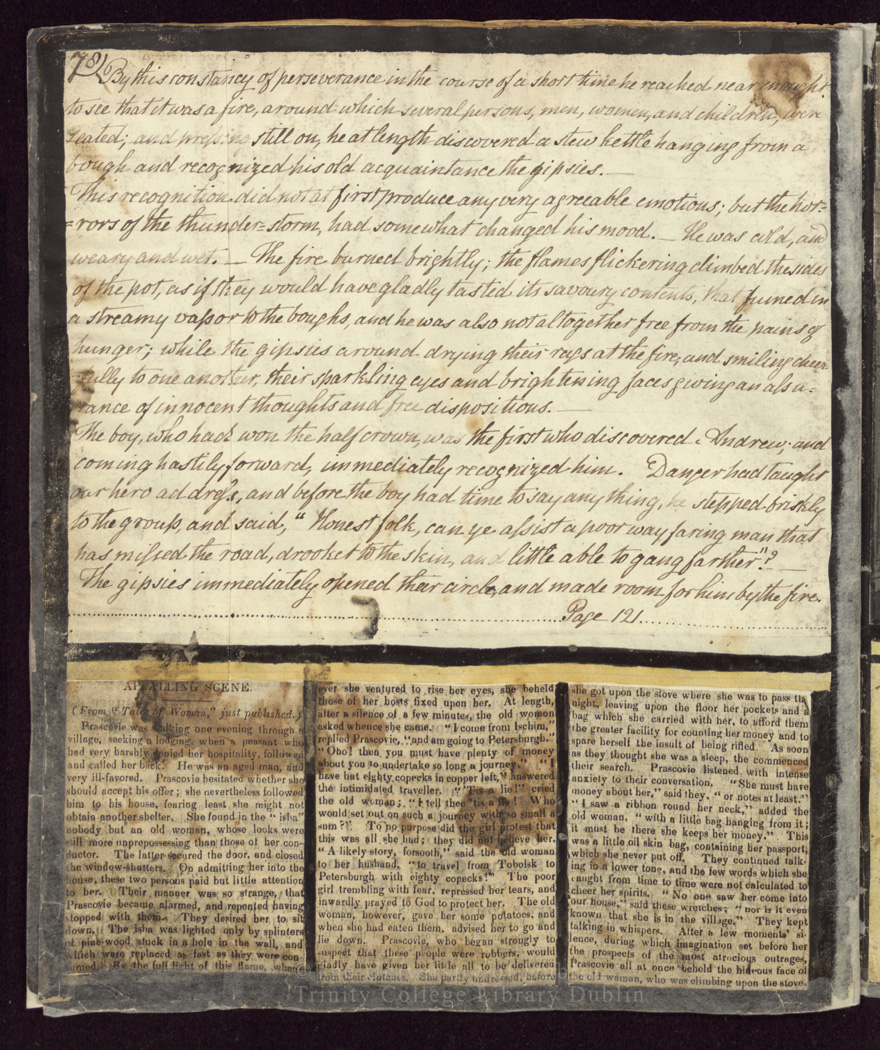 78
By this constancy of perseverance in the course of a short time he reached near enought
to see that it was a fire, around which several persons, men, women, and children, were
seated; and pressing still on, he at length discovered a stew kettle hanging from a
bough and recognized his old acquaintance the gipsies. —
This recognition did not at first produce any very agreeable emotions; but the hor=
=rors of the thunder=storm, had somewhat changed his mood. — He was cold, and
weary and wet. — The fire burned brightly; the flames flickering climbed the sides
of the pot, as if they would have gladly tasted its savoury contents, that fumed in
a streamy vapor to the boughs, and he was also not altogether free from the pains of
hunger; while the gipsies around drying their rags at the fire, and smiling cheer-
fully to one another, their sparkling eyes and brightening faces giving an assu-
rance of innocent thoughts and free dispositions. —
The boy, who had won the half crown, was the first who discovered Andrew; and
coming hastily forward, immediately recognized him. Danger had taught
our hero address, and before the boy had time to say any thing, he stepped briskly
to the group, and said, "Honest folk, can ye assist a poor way faring man that
has missed the road, drooket to the skin, and little able to gang farther"? —
The gipsies immediately opened their circle, and made room for him by the fire.
Page 121
APPALLING SCENE.
(From "Tales of Women," just published.)
Prascovie was walking one evening through a
village, seeking a lodging, when a peasant who
had very harshly denied her hospitality, followed
and called her back. He was an aged man, and
very ill-favored. Prascovie hesitated whether she
should accept his offer; she nevertheless followed
him to his house, fearing least she might not
obtain another shelter. She found in the "isba"
nobody but an old woman, whose looks were
still more unprepossessing than those of her con-
ductor. The latter secured the door, and closed
the window-shutters. On admitting her into the
house, these two persons paid but little attention
to her. Their manner was so strange, that
Prascovie became alarmed, and repented having
stopped with them. They desired her to sit
down. The isba was lighted only by splinters
of pine wood stuck in a hole in the wall, and
which were replaced as fast as they were con-
sumed. By the full light of this flame, when-
ever she ventured to rise her eyes, she beheld
those of her hosts fixed upon her. At length,
after a silence of a few minutes, the old woman
asked whence she came. "I come from Ischim,"
replied Prascovie, "and am going to Petersburgh."
"Oho! then you must have plenty of money
about you to undertake so long a journey." "I
have but eighty copecks in copper left," answered
the intimidated traveller. "'Tis a lie!" cried
the old woman; "I tell thee 'tis a lie! Who
would set out on such a journey with so small a
sum?" To no purpose did the girl protest that
this was all she had; they did not believe her.
"A likely story, forsooth," said the old woman
to her husband, "to travel from Tobolsk to
Petersburgh with eighty copecks!" The poor
girl trembling with fear, repressed her tears, and
inwardly prayed to God to protect her. The old
woman, however, gave her some potatoes, and
when she had eaten them, advised her to go and
lie down. Prascovie, who began strongly to
suspect that these people were robbers, would
gladly have given her little all to be delivered
from their clutches. She partly undressed, before
she got upon the stove where she was to pass the
night, leaving upon the floor her pockets and a
bag which she carried with her, to afford them
the greater facility for counting her money and to
spare herself the insult of being rifled. As soon
as they thought she was a sleep, the commenced
their search. Prascovie listened with intense
anxiety to their conversation. "She must have
money about her," said they, "or notes at least."
"I saw a ribbon round her neck," added the
old woman, "with a little bag hanging from it;
it must be there she keeps her money." This
was a little oil skin bag, containing her passport,
which she never put off. They continued talk-
ing in a lower tone, and the few words which she
caught from time to time were not calculated to
cheer her spirits. "No one saw her come into
our house," said these wretches; "nor is it even
known that she is in the village." They kept
talking in whispers. After a few moments' si-
lence, during which imagination set before her
the prospects of the most atrocious outrages,
Prascovie all at once beheld the hideous face of
the old woman, who was climbing upon the stove.
Trinity College Library Dublin